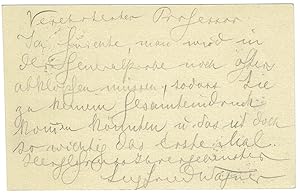 Verehrtester Professor
Ich fürchte, man wird in
der Generalprobe noch öfter
abklopfen müssen, sodass Sie
zu keinem Gesamteindruck
kommen könnten u das ist doch
so wichtig das erste Mal.
Siegfried Wagner